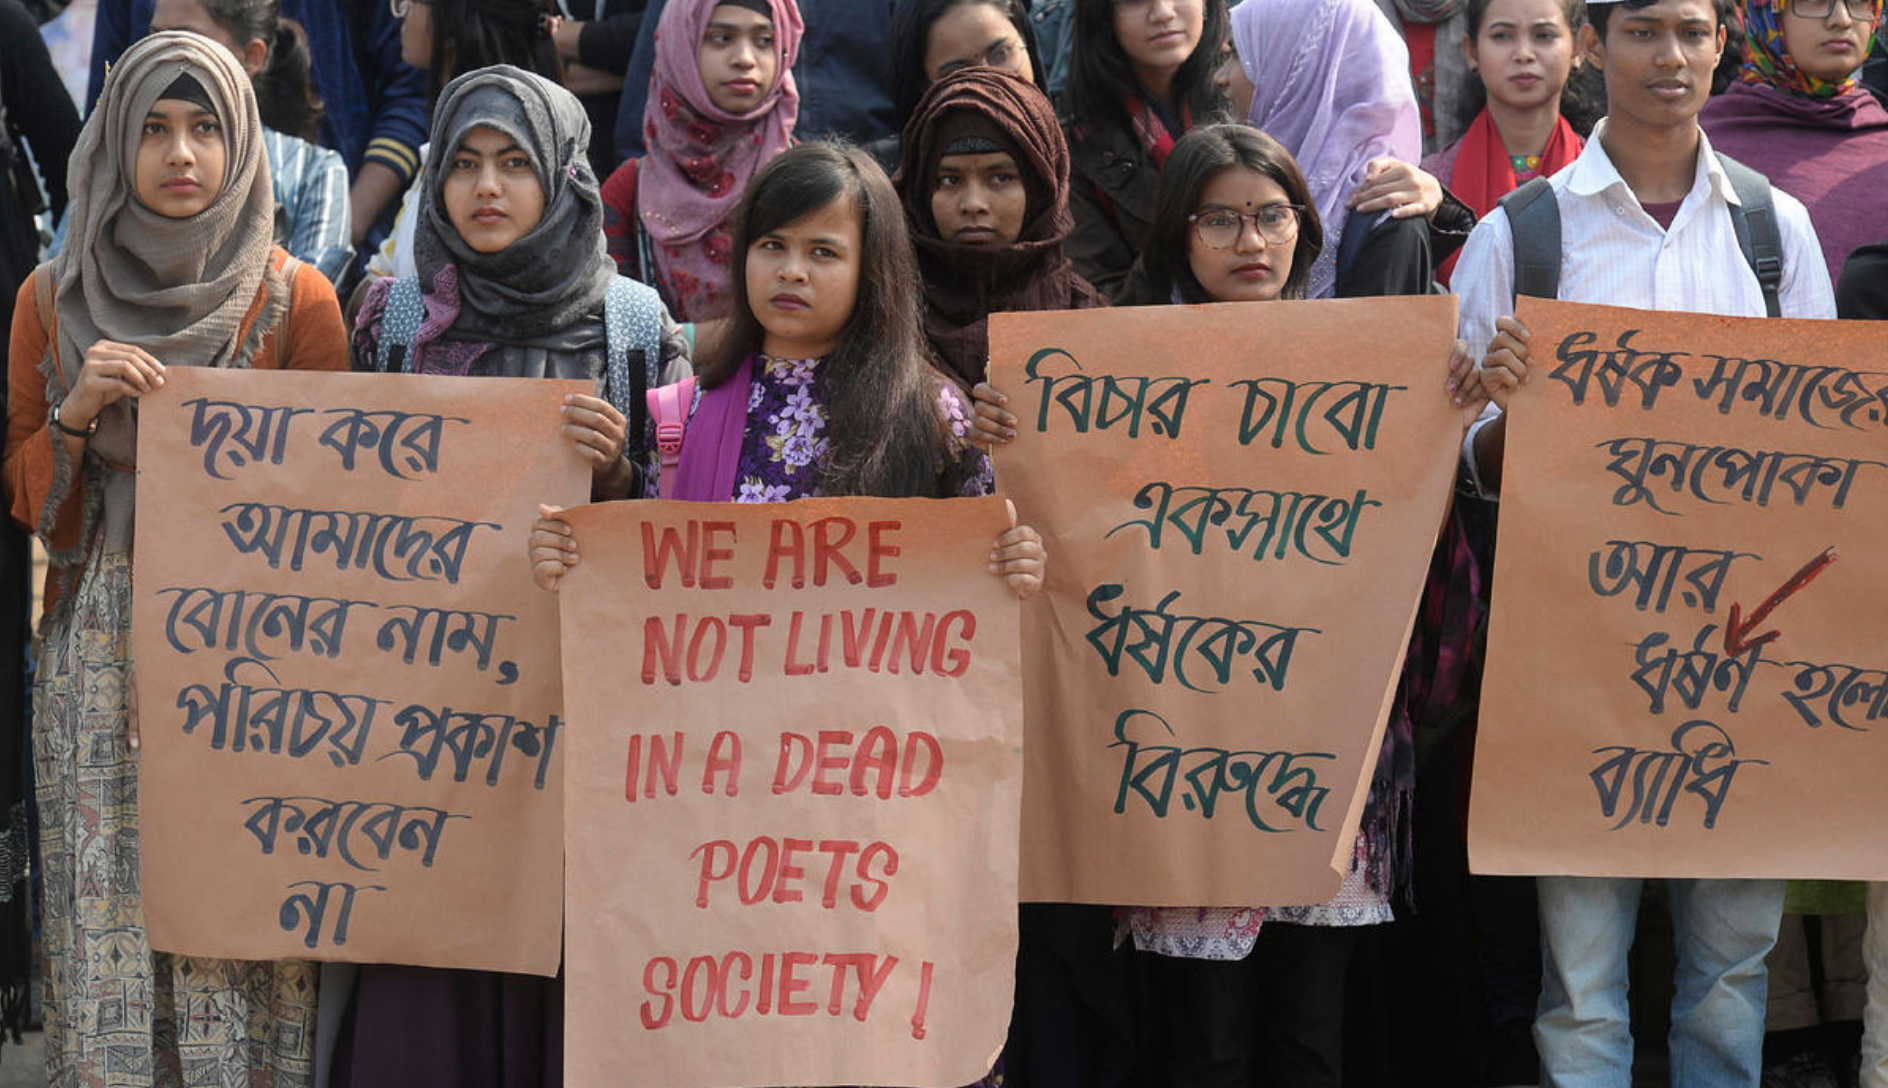 দয়া করে
আমাদের
বোনের নাম,
পরিচয় প্রকাশ
করবেন
না
WE ARE
NOT LIVING
IN A DEAD
POETS
SOCIETY!
বিচার চাবো
একসাথে
ধর্ষকের
বিরুদ্ধে
ধর্ষক সমাজের
ঘুনপোকা
আর
ধর্ষণ হলো
ব্যাধি